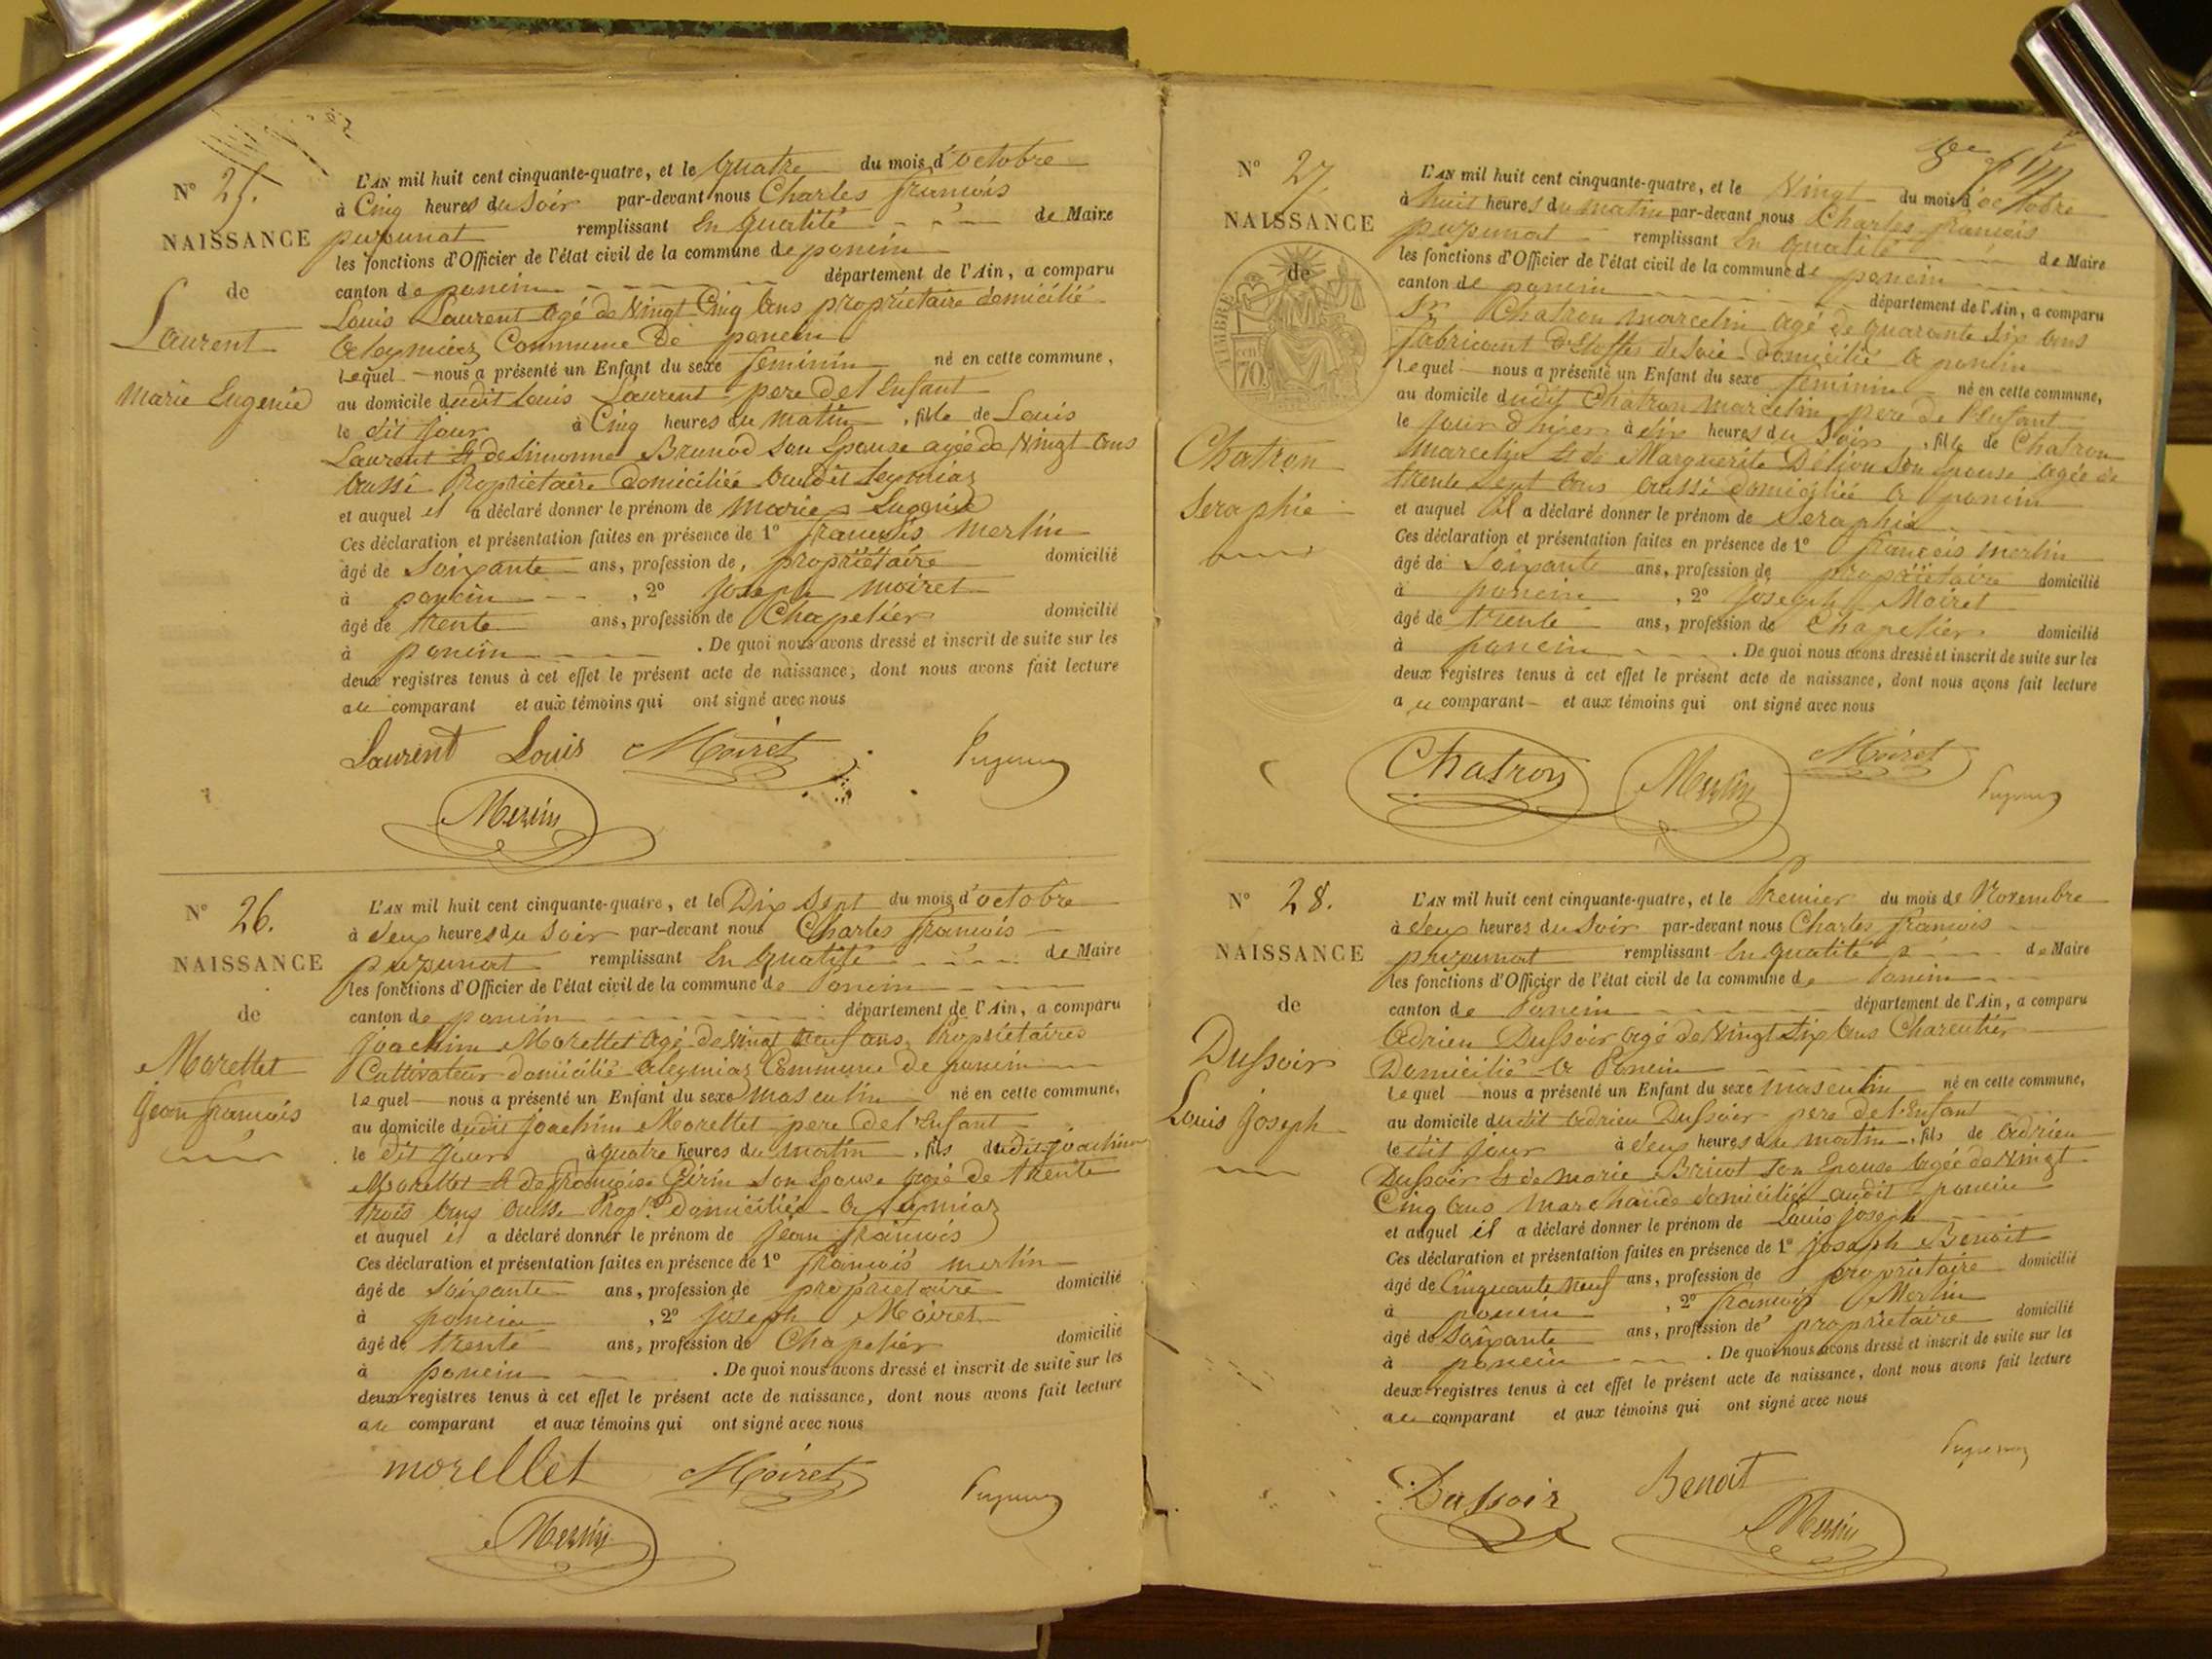 N° 25.
NAISSANCE
de
Laurent
Marie Eugenie
L'AN mil huit cent cinquante-quatre, et le quatre du mois d'octobre
à Cinq heures du Soir par-devant nous Charles francois
remplissant En qualité de Maire
les fonctions d'Officier de l'état civil de la commune de poncin
canton de poncin département de l'Ain, a comparu
Louis Laurent agé de Vingt Cinq ans propriétaire domicilié
Commune De poncin
lequel nous a présenté un Enfant du sexe feminin né en cette commune,
au domicile dudit Louis Laurent pere de l'Enfant
le dit jour à Cinq heures du matin, fille de Louis
Laurent Et de Simonne Brunod son Epouse agée de Vingt ans
aussi Propriétaire domiciliée audit
et auquel il a déclaré donner le prénom de Marie Eugenie
Ces déclaration et présentation faites en présence de 1° francois Merlin
âgé de Soixante ans, profession de, propriétaire domicilié
à poncin , 2° joseph moiret
âgé de trente ans, profession de Chapelier domicilié
à poncin . De quoi nous avons dressé et inscrit de suite sur les
deux registres tenus à cet effet le présent acte de naissance, dont nous avons fait lecture
au comparant et aux témoins qui ont signé avec nous
Laurent Louis Moiret
Merlin
N° 26.
NAISSANCE
de
Morellet
jean francois
L'AN mil huit cent cinquante-quatre, et le Dix Sept du mois d'octobre
à deux heures du Soir par-devant nous Charles francois
remplissant En qualité de Maire
les fonctions d'Officier de l'état civil de la commune de Poncin
canton de poncin département de l'Ain, a comparu
joachim Morellet agé de Vingt neuf ans Propriétaires
Cultivateur domicilié Commune de poncin
lequel nous a présenté un Enfant du sexe masculin né en cette commune,
au domicile dudit joachim Morellet pere de l'Enfant
le dit jour à quatre heures du matin, fils dudit joachim
Morellet Et de françoise Girin son Epouse agée de trente
trois ans aussi Prop.re Domiciliée a
et auquel il a déclaré donner le prénom de jean francois
Ces déclaration et présentation faites en présence de 1° francois merlin
âgé de soixante ans, profession de propriétaire domicilié
à poncin , 2° joseph Moiret
âgé de trente ans, profession de Chapelier domicilié
à poncin . De quoi nous avons dressé et inscrit de suite sur les
deux registres tenus à cet effet le présent acte de naissance, dont nous avons fait lecture
au comparant et aux témoins qui ont signé avec nous
morellet Moiret
Merlin
N° 27.
NAISSANCE
de
TIMBRE
70.
Chatron
Seraphie
L'AN mil huit cent cinquante-quatre, et le Vingt du mois d'octobre
à huit heures du matin par-devant nous Charles francois
remplissant En qualité de Maire
les fonctions d'Officier de l'état civil de la commune de poncin
canton de poncin département de l'Ain, a comparu
Sr Chatron marcelin agé de quarante Six ans
fabricant D'Etoffes de soie domicilié a poncin
lequel nous a présenté un Enfant du sexe feminin né en cette commune,
au domicile dudit Chatron Marcelin pere de l'Enfant
le jour d'hyer à six heures du Soir, fille de Chatron
Marcelin Et de Marguerite son Epouse agée de
trente Sept ans aussi domiciliée a poncin
et auquel il a déclaré donner le prénom de Seraphie
Ces déclaration et présentation faites en présence de 1° françois merlin
âgé de Soixante ans, profession de propriétaire domicilié
à poncin , 2° joseph Moiret
âgé de trente ans, profession de Chapelier domicilié
à poncin . De quoi nous avons dressé et inscrit de suite sur les
deux registres tenus à cet effet le présent acte de naissance, dont nous avons fait lecture
au comparant et aux témoins qui ont signé avec nous
Chatron Merlin Moiret
N° 28.
NAISSANCE
de
Dussoir
Louis joseph
L'AN mil huit cent cinquante-quatre, et le Premier du mois de Novembre
à deux heures du Soir par-devant nous Charles francois
remplissant En qualité de Maire
les fonctions d'Officier de l'état civil de la commune de Poncin
canton de Poncin département de l'Ain, a comparu
adrien Dussoir agé de Vingt Six ans Charcutier
Domicilié a Poncin
lequel nous a présenté un Enfant du sexe masculin né en cette commune,
au domicile dudit adrien Dussoir pere de l'Enfant
le dit jour à deux heures du matin, fils de adrien
Dussoir Et de marie son Epouse agée de Vingt
Cinq ans Marchande domiciliée audit poncin
et auquel il a déclaré donner le prénom de Louis joseph
Ces déclaration et présentation faites en présence de 1° joseph Benoit
âgé de Cinquante neuf ans, profession de propriétaire domicilié
à poncin , 2° francois Merlin
âgé de Soixante ans, profession de propriétaire domicilié
à poncin . De quoi nous avons dressé et inscrit de suite sur les
deux registres tenus à cet effet le présent acte de naissance, dont nous avons fait lecture
au comparant et aux témoins qui ont signé avec nous
Dussoir Benoit
Merlin